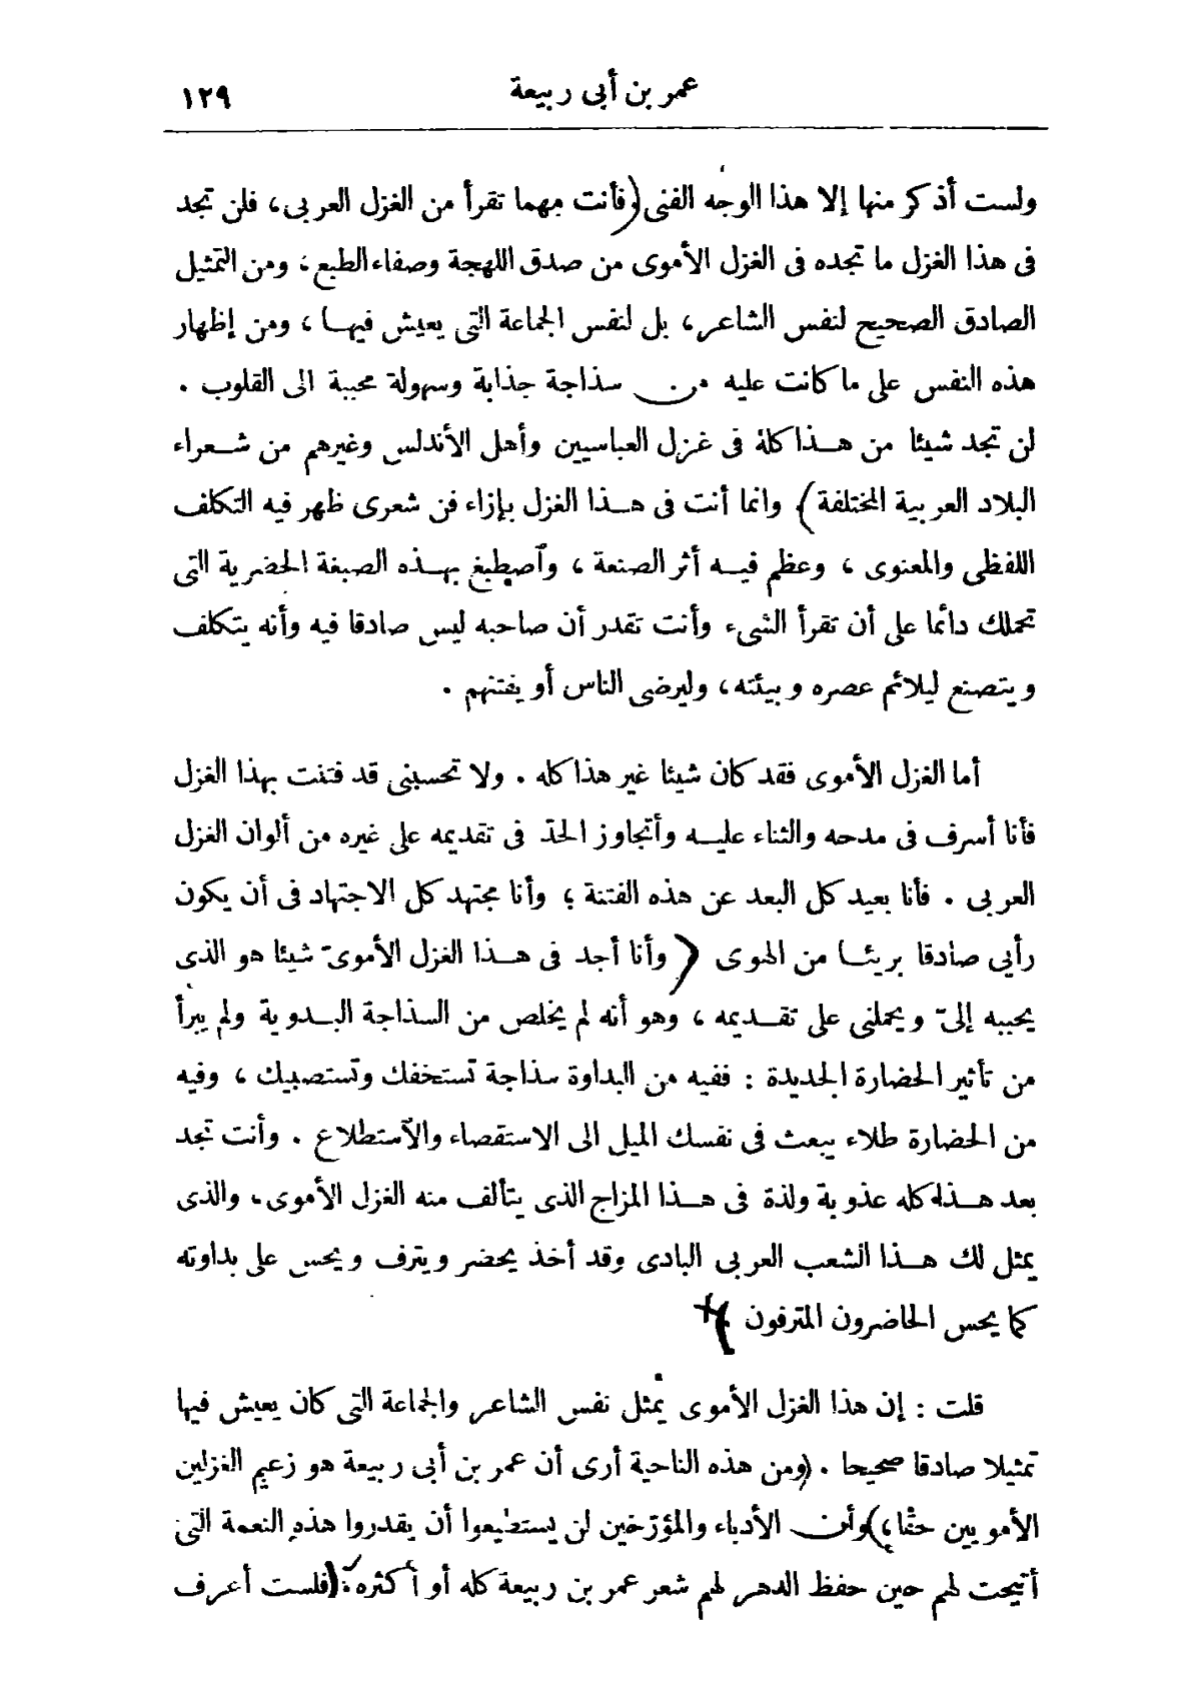 عمر بن أبى ربيعة ١٢٩
ولست أذكر منها إلا هذا الوجه الفنى (فأنت مهما تقرأ من الغزل العربى، فلن تجد
فى هذا الغزل ما تجده فى الغزل الأموى من صدق اللهجة وصفاء الطبع، ومن التمثيل
الصادق الصحيح لنفس الشاعر، بل لنفس الجماعة التى يعيش فيها، ومن إظهار
هذه النفس على ما كانت عليه من سذاجة جذابة وسهولة محببة الى القلوب .
لن تجد شيئا من هذا كلهُ فى غزل العباسيين وأهل الأندلس وغيرهم من شعراء
البلاد العربية المختلفة) وانما أنت فى هذا الغزل بإزاء فن شعرى ظهر فيه التكلف
اللفظى والمعنوى، وعظم فيه أثر الصنعة، وٱصطبغ بهذه الصبغة الحضرية التى
تحملك دائما على أن تقرأ الشىء وأنت تقدر أن صاحبه ليس صادقا فيه وأنه يتكلف
ويتصنع ليلائم عصره وبيئته، وليرضى الناس أو يفتنهم .
أما الغزل الأموى فقد كان شيئا غير هذا كله . ولا تحسبنى قد فتنت بهذا الغزل
فأنا أسرف فى مدحه والثناء عليه وأتجاوز الحدّ فى تقديمه على غيره من ألوان الغزل
العربى . فأنا بعيد كل البعد عن هذه الفتنة ؛ وأنا مجتهد كل الاجتهاد فى أن يكون
رأيى صادقا بريئا من الهوى (وأنا أجد فى هذا الغزل الأموىّ شيئا هو الذى
يحببه إلىّ ويحملنى على تقديمه، وهو أنه لم يخلص من السذاجة البدوية ولم يبرأ
من تأثير الحضارة الجديدة : ففيه من البداوة سذاجة تستخفك وتستصبيك، وفيه
من الحضارة طلاء يبعث فى نفسك الميل الى الاستقصاء والٱستطلاع . وأنت تجد
بعد هذا كله عذوبة ولذة فى هذا المزاج الذى يتألف منه الغزل الأموى، والذى
يمثل لك هذا الشعب العربى البادى وقد أخذ يحضر ويترف ويحس على بداوته
كما يحس الحاضرون المترفون )
قلت : إن هذا الغزل الأموى يمثل نفس الشاعر والجماعة التى كان يعيش فيها
تمثيلا صادقا صحيحا . (ومن هذه الناحية أرى أن عمر بن أبى ربيعة هو زعيم الغزلين
الأمويين حقًا،) وأن الأدباء والمؤرّخين لن يستطيعوا أن يقدروا هذه النعمة التى
أتيحت لهم حين حفظ الدهر لهم شعر عمر بن ربيعة كله أو أكثره: (فلست أعرف